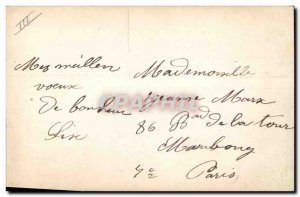 III
Mes meilleur
voeux
De bonheur
Lix
Mademoiselle
Jeanne Marx
86 Bard de la tour
Maubourg
7e Paris